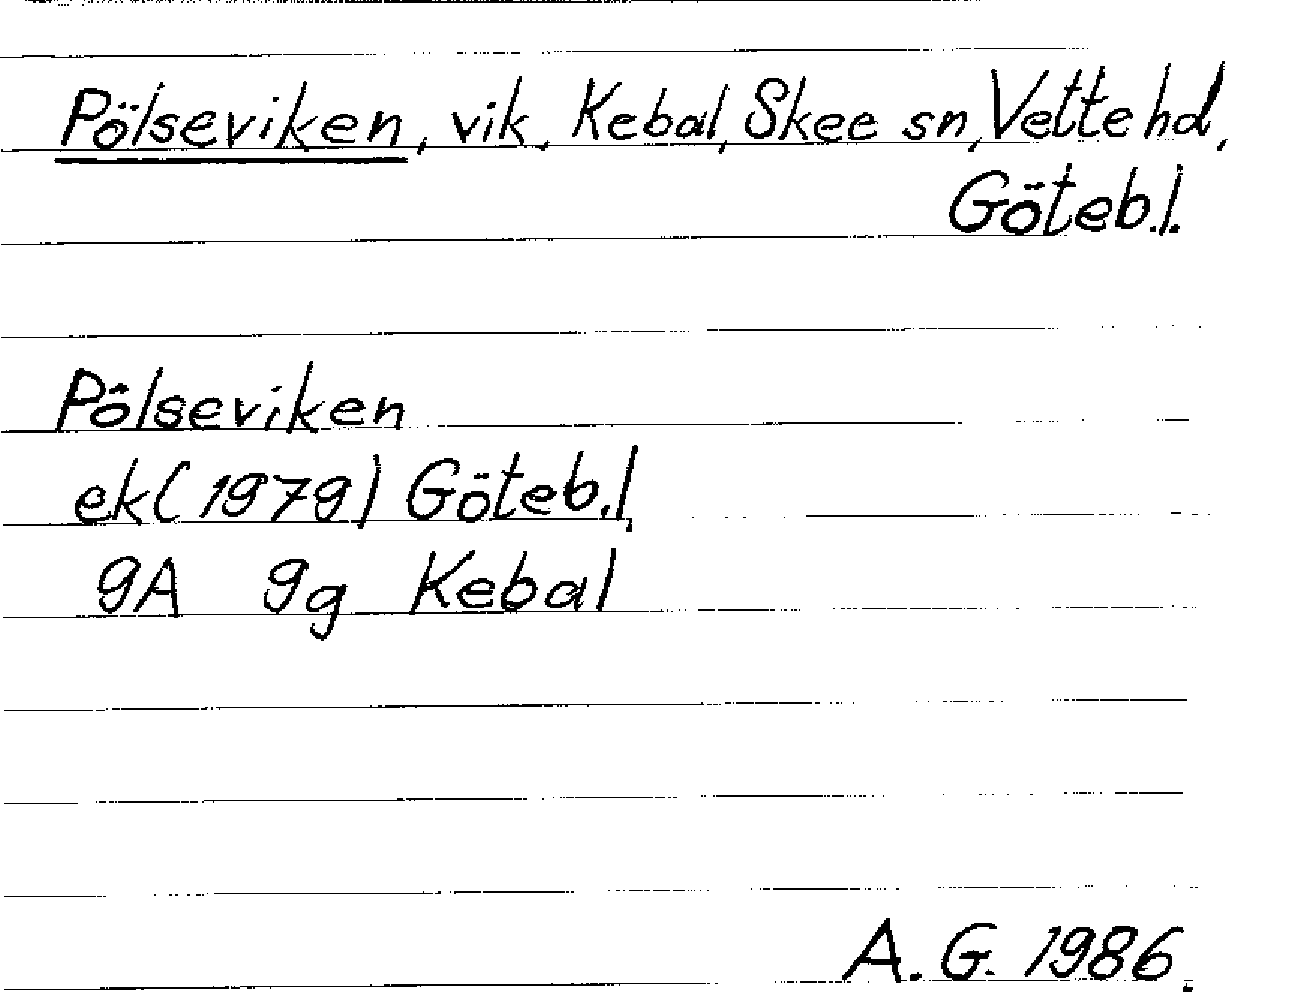 Pölseviken, vik, Kebal, Skee sn, Vette hd,
Göteb.l.
Pölseviken
ek(1979) Göteb.l,
9A 9g Kebal
A. G. 1986.